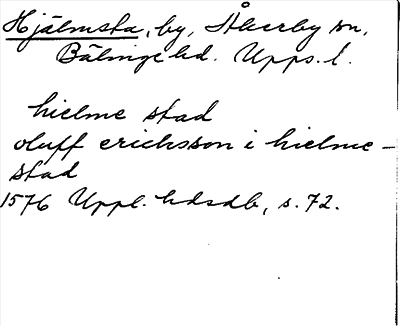 Hjälmsta, by, Åkerby sn,
Bälinge hd. Upps. l.
hielme stad
oluff ericksson i hielme-
stad
1576 Uppl. hdsdb, s. 72.